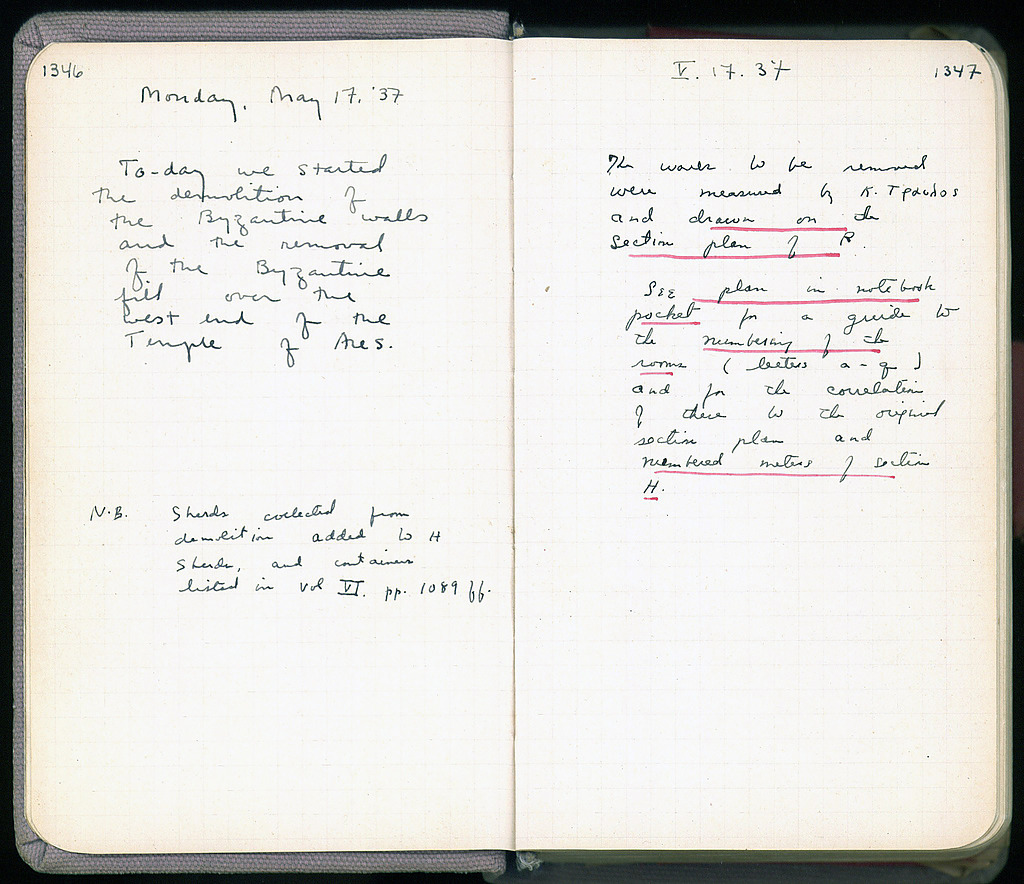 1346
Monday, May 17, '37
To-day we started
the demolition of
the Byzantine walls
and the removal
of the Byzantine
fill over the
west end of the
Temple of Ares.
N.B. Sherds collected from
demolition added to H
sherds, and containers
listed in vol VI. pp. 1089 ff.
V. 17. 37
1347
The walls to be removed
were measured by K. Τραυλος
and drawn on the
section plan of
See plan in notebook
pocket for a guide to
the numbering of the
rooms (letters a-q)
and for the correlation
of these to the original
section plan and
numbered meters of section
H.